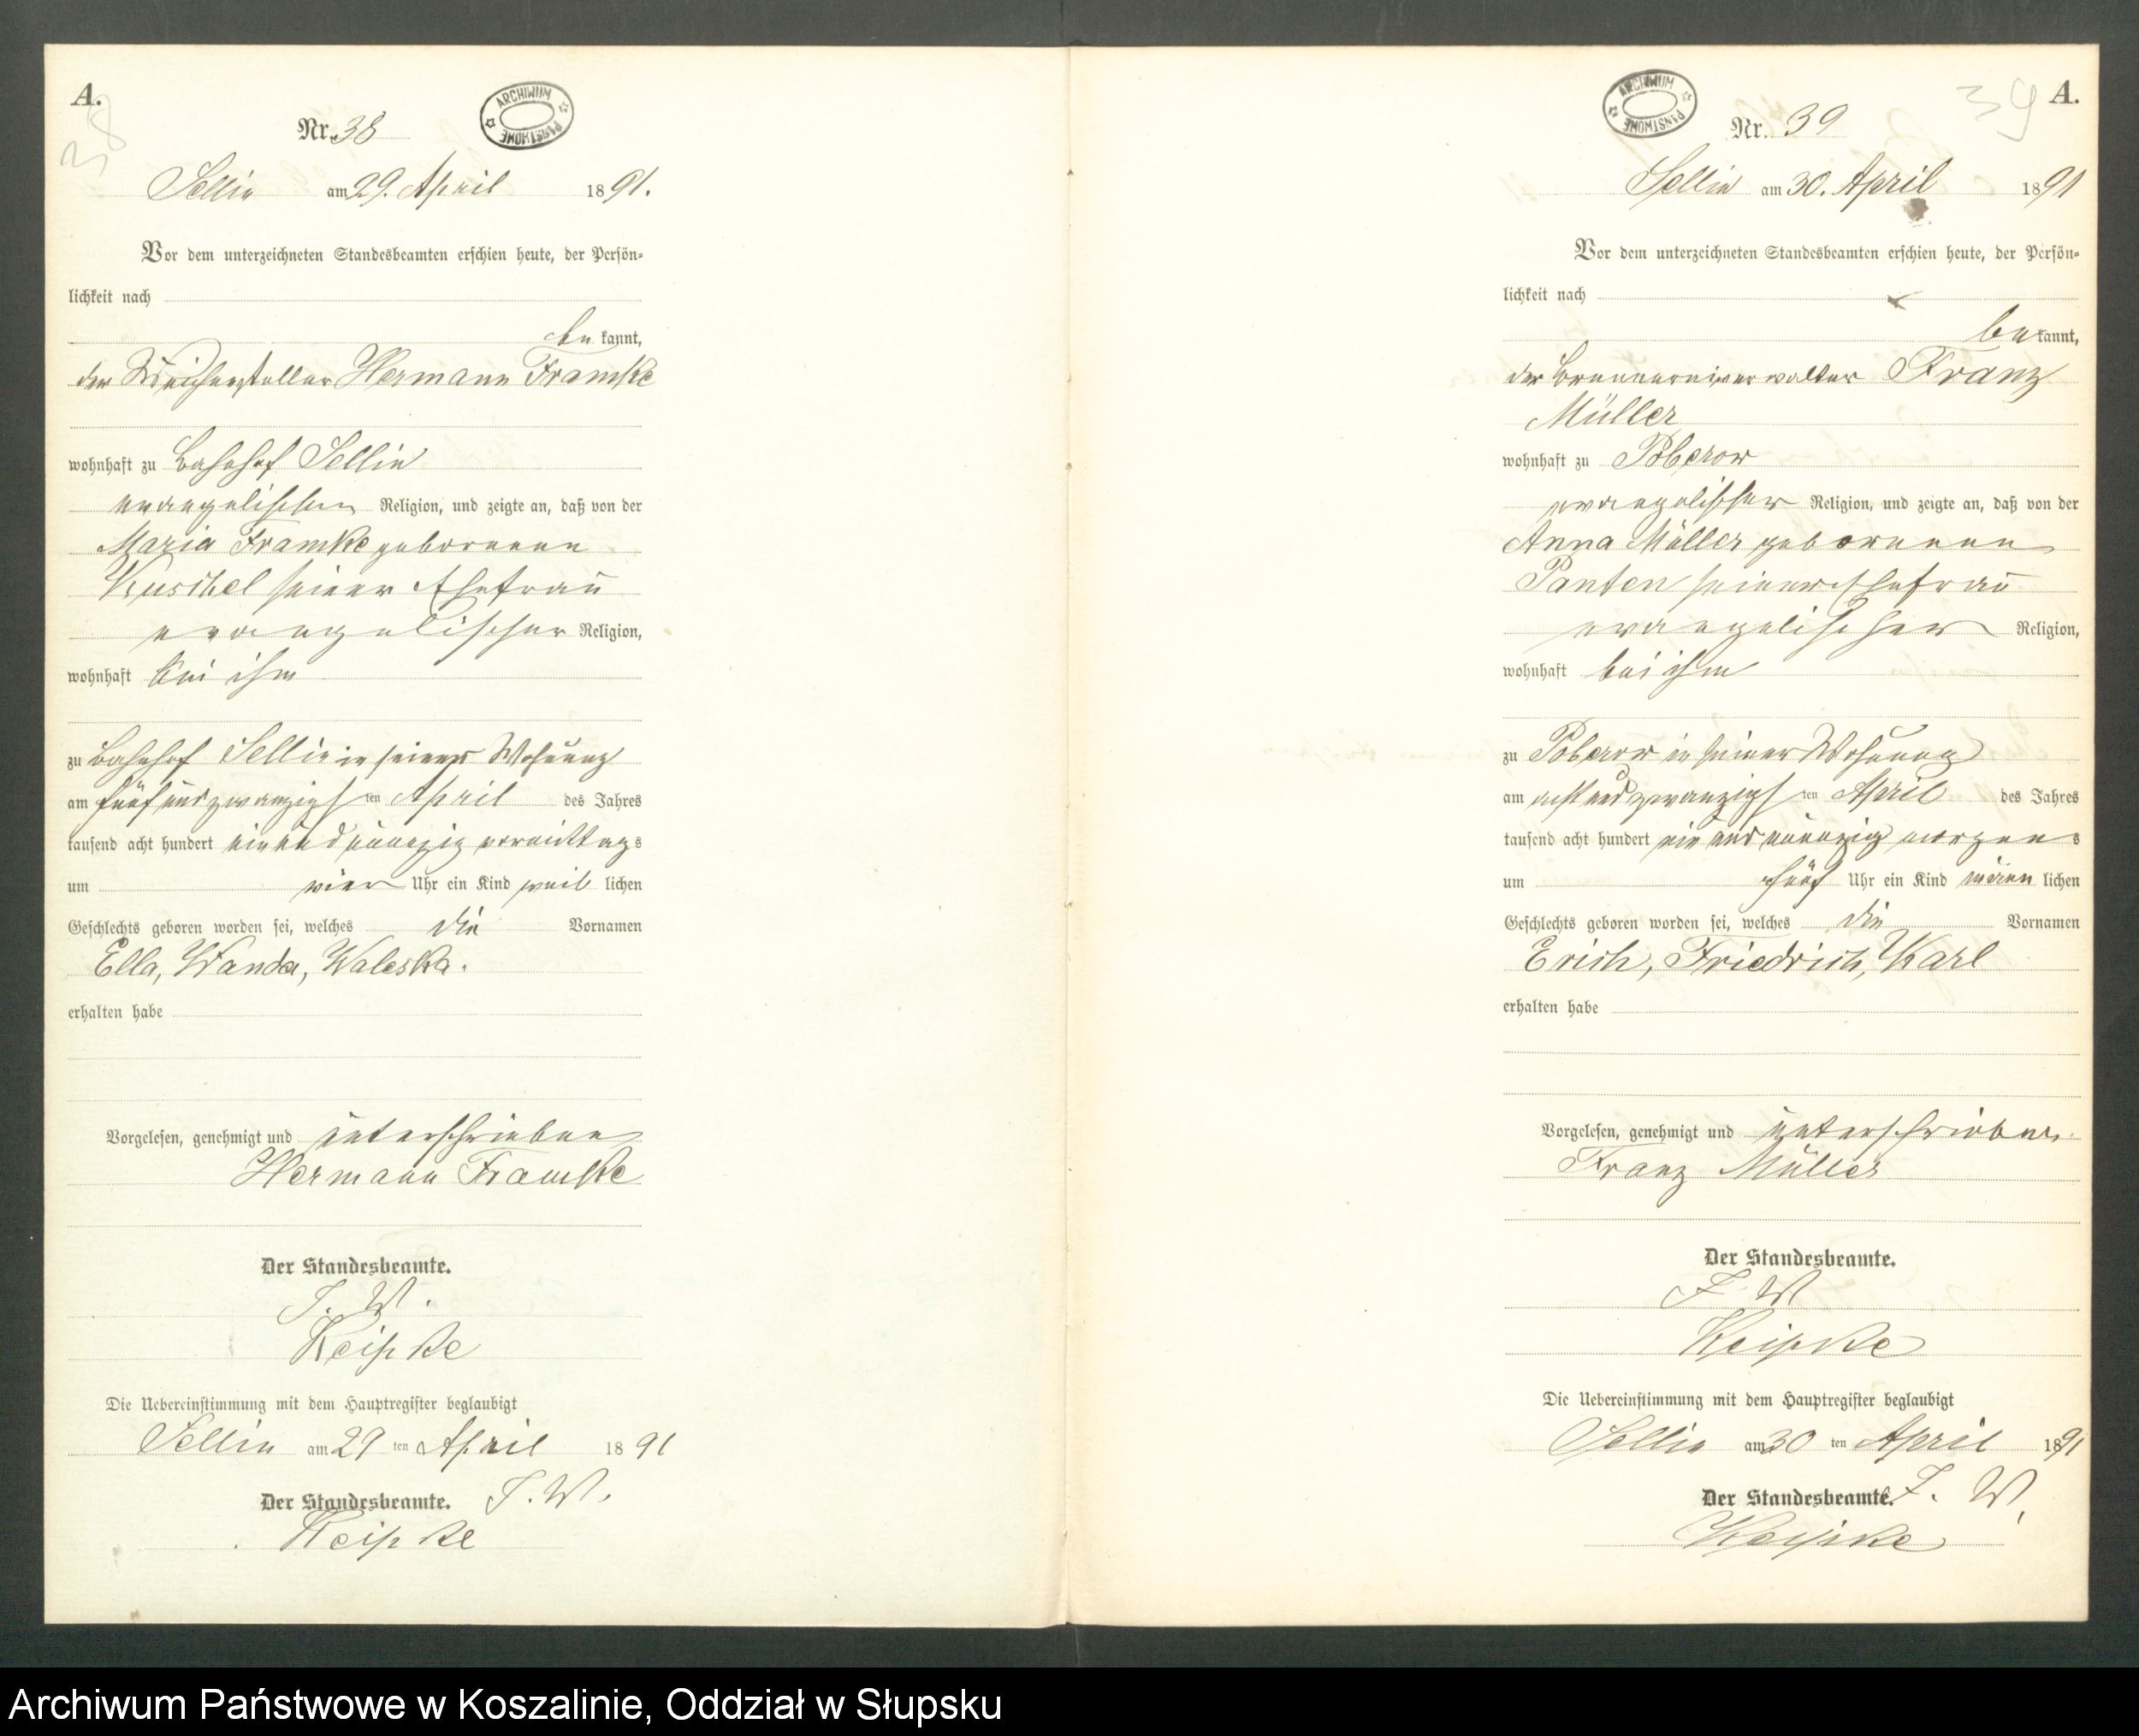 A.
38
Nr. 38
ARCHIWUM PAŃSTWOWE
Sellin am 29. April 1891.
Vor dem unterzeichneten Standesbeamten erschien heute, der Persön-
lichkeit nach
be kannt,
der Weichensteller Hermann Framke
wohnhaft zu Bahnhof Sellin
evangelischen Religion, und zeigte an, daß von der
Maria Framke geborenen
Kuschel seiner Ehefrau
evangelischer Religion,
wohnhaft bei ihm
zu Bahnhof Sellin in seiner Wohnung
am fünf und zwanzigsten April des Jahres
tausend acht hundert ein und neunzig vormittags
um vier Uhr ein Kind weib lichen
Geschlechts geboren worden sei, welches die Vornamen
Ella, Wanda, Waleska.
erhalten habe
Vorgelesen, genehmigt und unterschrieben
Hermann Framke
Der Standesbeamte.
J. W.
Keipke
Die Uebereinstimmung mit dem Hauptregister beglaubigt
Sellin am 29 ten April 1891
Der Standesbeamte. J. W.
Keipke
39
A.
ARCHIWUM PAŃSTWOWE
Nr. 39
Sellin am 30. April 1891
Vor dem unterzeichneten Standesbeamten erschien heute, der Persön-
lichkeit nach
be kannt,
der Brennereiverwalter Franz
Müller
wohnhaft zu Poberow
evangelischer Religion, und zeigte an, daß von der
Anna Müller geborenen
Panten seiner Ehefrau
evangelischer Religion,
wohnhaft bei ihm
zu Poberow in seiner Wohnung
am acht und zwanzigsten April des Jahres
tausend acht hundert ein und neunzig morgens
um fünf Uhr ein Kind männ lichen
Geschlechts geboren worden sei, welches die Vornamen
Erich, Friedrich, Karl
erhalten habe
Vorgelesen, genehmigt und unterschrieben.
Franz Müller
Der Standesbeamte.
J. W
Keipke
Die Uebereinstimmung mit dem Hauptregister beglaubigt
Sellin am 30 ten April 1891
Der Standesbeamte. J. W.
Keipke
Archiwum Państwowe w Koszalinie, Oddział w Słupsku